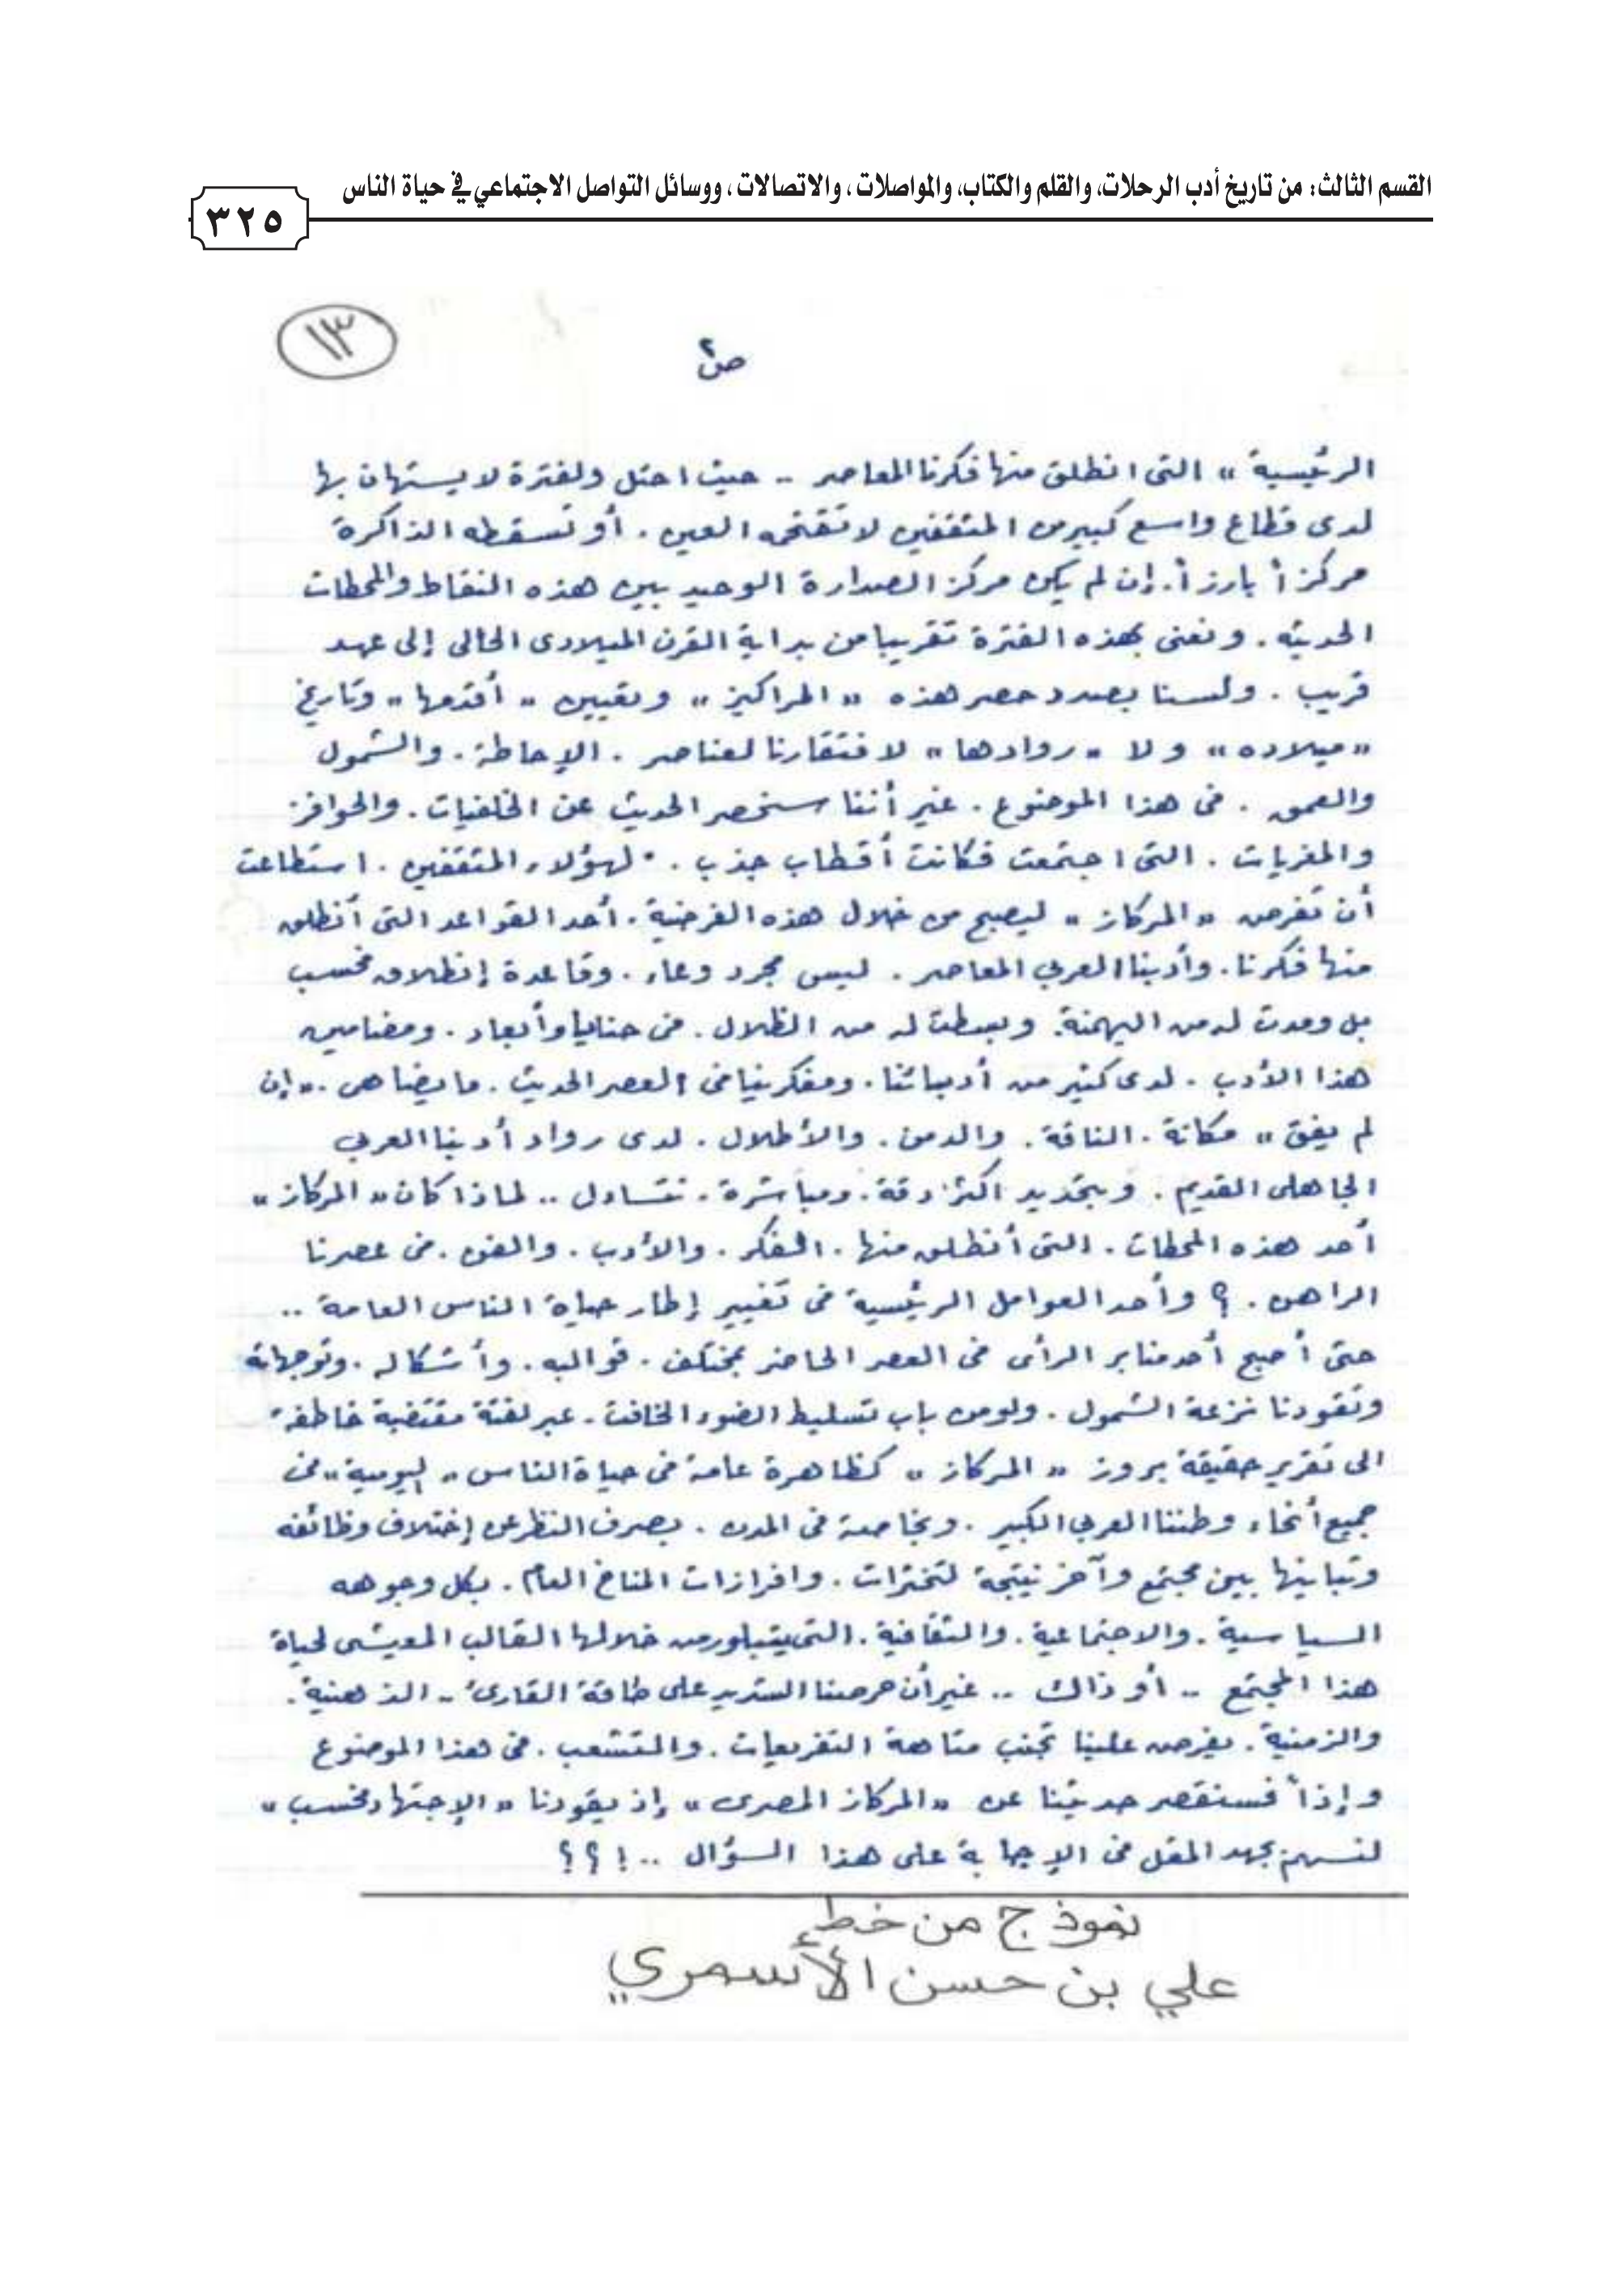 القسم الثالث: من تاريخ أدب الرحلات، والقلم والكتاب، والمواصلات، والاتصالات، ووسائل التواصل الاجتماعي في حياة الناس
٣٢٥
١٣
ص٢
الرئيسية » التى انطلق منها فكرنا المعاصر .. حيث احتل ولفترة لا يستهان بها
لدى قطاع واسع كبير من المثقفين لا تقتحمه العين . أو تسقطه الذاكرة
مركزاً بارزاً . إن لم يكن مركز الصدارة الوحيد بين هذه النقاط والمحطات
الحديثه . ونعنى بهذه الفترة تقريبا من بداية القرن الميلادى الحالى إلى عهد
قريب . ولسنا بصدد حصر هذه « المراكيز » وتعيين « أقدمها » وتاريخ
« ميلاده » ولا « روادها » لافتقارنا لعناصر . الإحاطة . والشمول
والعمق . فى هذا الموضوع . غير أننا سنحصر الحديث عن الخلفيات . والحوافز
والمغريات . التى اجتمعت فكانت أقطاب جذب . لهؤلاء المثقفين . استطاعت
أن تفرض « المركاز » ليصبح من خلال هذه الفرضية . أحد القواعد التى أنطلق
منها فكرنا . وأدبنا العربي المعاصر . ليس مجرد وعاء . وقاعدة إنطلاق فحسب
بل ومدت له من الهيمنة . وبسطت له من الظلال . فى حنايا وأبعاد . ومضامين
هذا الأدب . لدى كثير من أدبائنا . ومفكرينا فى العصر الحديث . ما يضاهى . « إن
لم يفق » مكانة . الناقة . والدمن . والأطلال . لدى رواد أدبنا العربي
الجاهلى القديم . وبتحديد اكثر دقة . ومباشرة . نتساءل .. لماذا كان « المركاز »
أحد هذه المحطات . التى أنطلق منها . الفكر . والأدب . والفن . فى عصرنا
الراهن . ؟ وأحد العوامل الرئيسية فى تغيير إطار حياة الناس العامة ..
حتى أصبح أحد منابر الرأى فى العصر الحاضر بمختلف . قوالبه . وأشكاله . وتوجهاته
وتقودنا نزعة الشمول . ولو من باب تسليط الضوء الخافت . عبر لفتة مقتضبة خاطفة
الى تقرير حقيقة بروز « المركاز » كظاهرة عامة فى حياة الناس « اليومية » فى
جميع أنحاء وطننا العربي الكبير . وبخاصة فى المدن . بصرف النظر عن إختلاف وظائفه
وتباينها بين مجتمع وآخر نتيجة لتخثرات . وافرازات المناخ العام . بكل وجوهه
السياسية . والاجتماعية . والثقافية . التى يتبلور من خلالها القالب المعيشى لحياة
هذا المجتمع .. أو ذاك .. غير أن حرصنا الشديد على طاقة القارئ .. الذهنية .
والزمنية . يفرض علينا تجنب متاهة التفريعات . والتشعب . فى هذا الموضوع
وإذاً فسنقصر حديثنا عن « المركاز المصرى » إذ يقودنا « الإجتهاد فحسب »
لنسهم بجهد المقل فى الإجابة على هذا السؤال .. ! ؟ ؟
نموذج من خط
علي بن حسن الأسمري